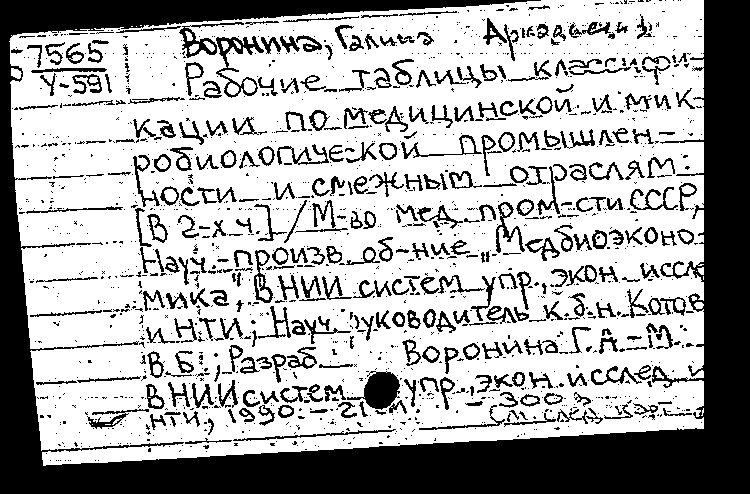 7565
У-591
Воронина, Галина Аркадьевна
Рабочие таблицы классифи-
кации по медицинской и мик-
робиологической промышлен-
ности и смежным отраслям:
[В 2-х ч.] / М-во мед. пром-сти СССР,
Науч.-произв. об-ние „Медбиоэконо-
мика", ВНИИ систем упр., экон. иссле
и НТИ; Науч. руководитель к.б.н. Котов
В.Б.; Разраб. Воронина Г.А. - М.:
ВНИИ систем упр., экон. исслед. и
НТИ, 1990. - 21 - 300 э
См. след. карт.